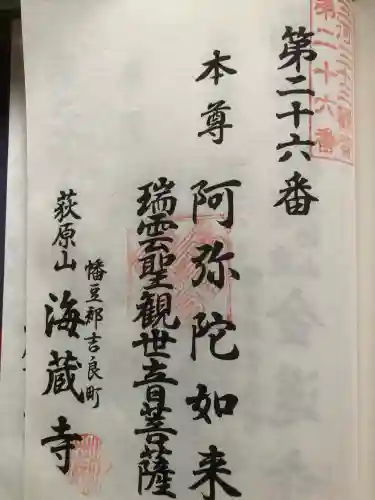 第二十六番
第二十六番
本尊 阿弥陀如来
瑞雲聖観世音菩薩
幡豆郡吉良町
荻原山 海蔵寺